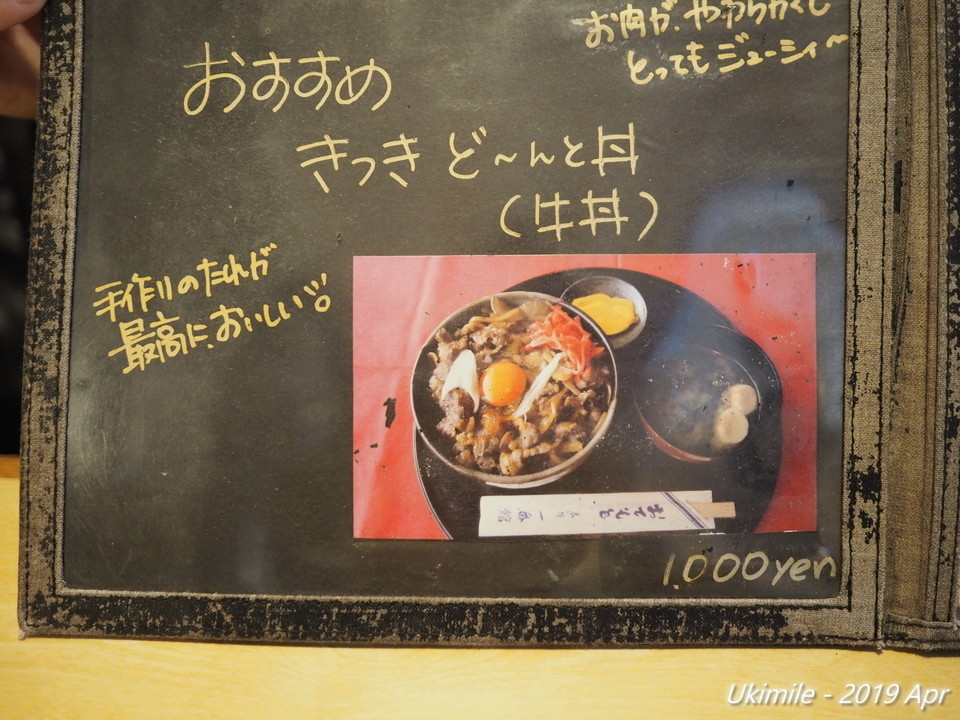 お肉が、やわらかくし
とってもジューシィ～
おすすめ
きっき ど～んと丼
(牛丼)
手作りのたれが
最高に、おいしい!!
おてもと
一応館
1,000yen
Ukimile - 2019 Apr